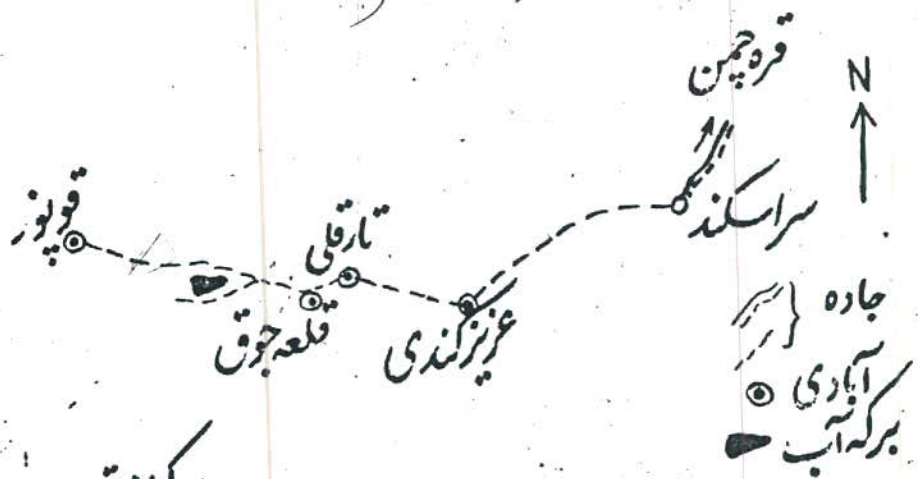 قره چمن
N
سراسکند
قوپوز
تارقلی
قلعه جوق
عزیز کندی
جاده
آبادی
برکه آب